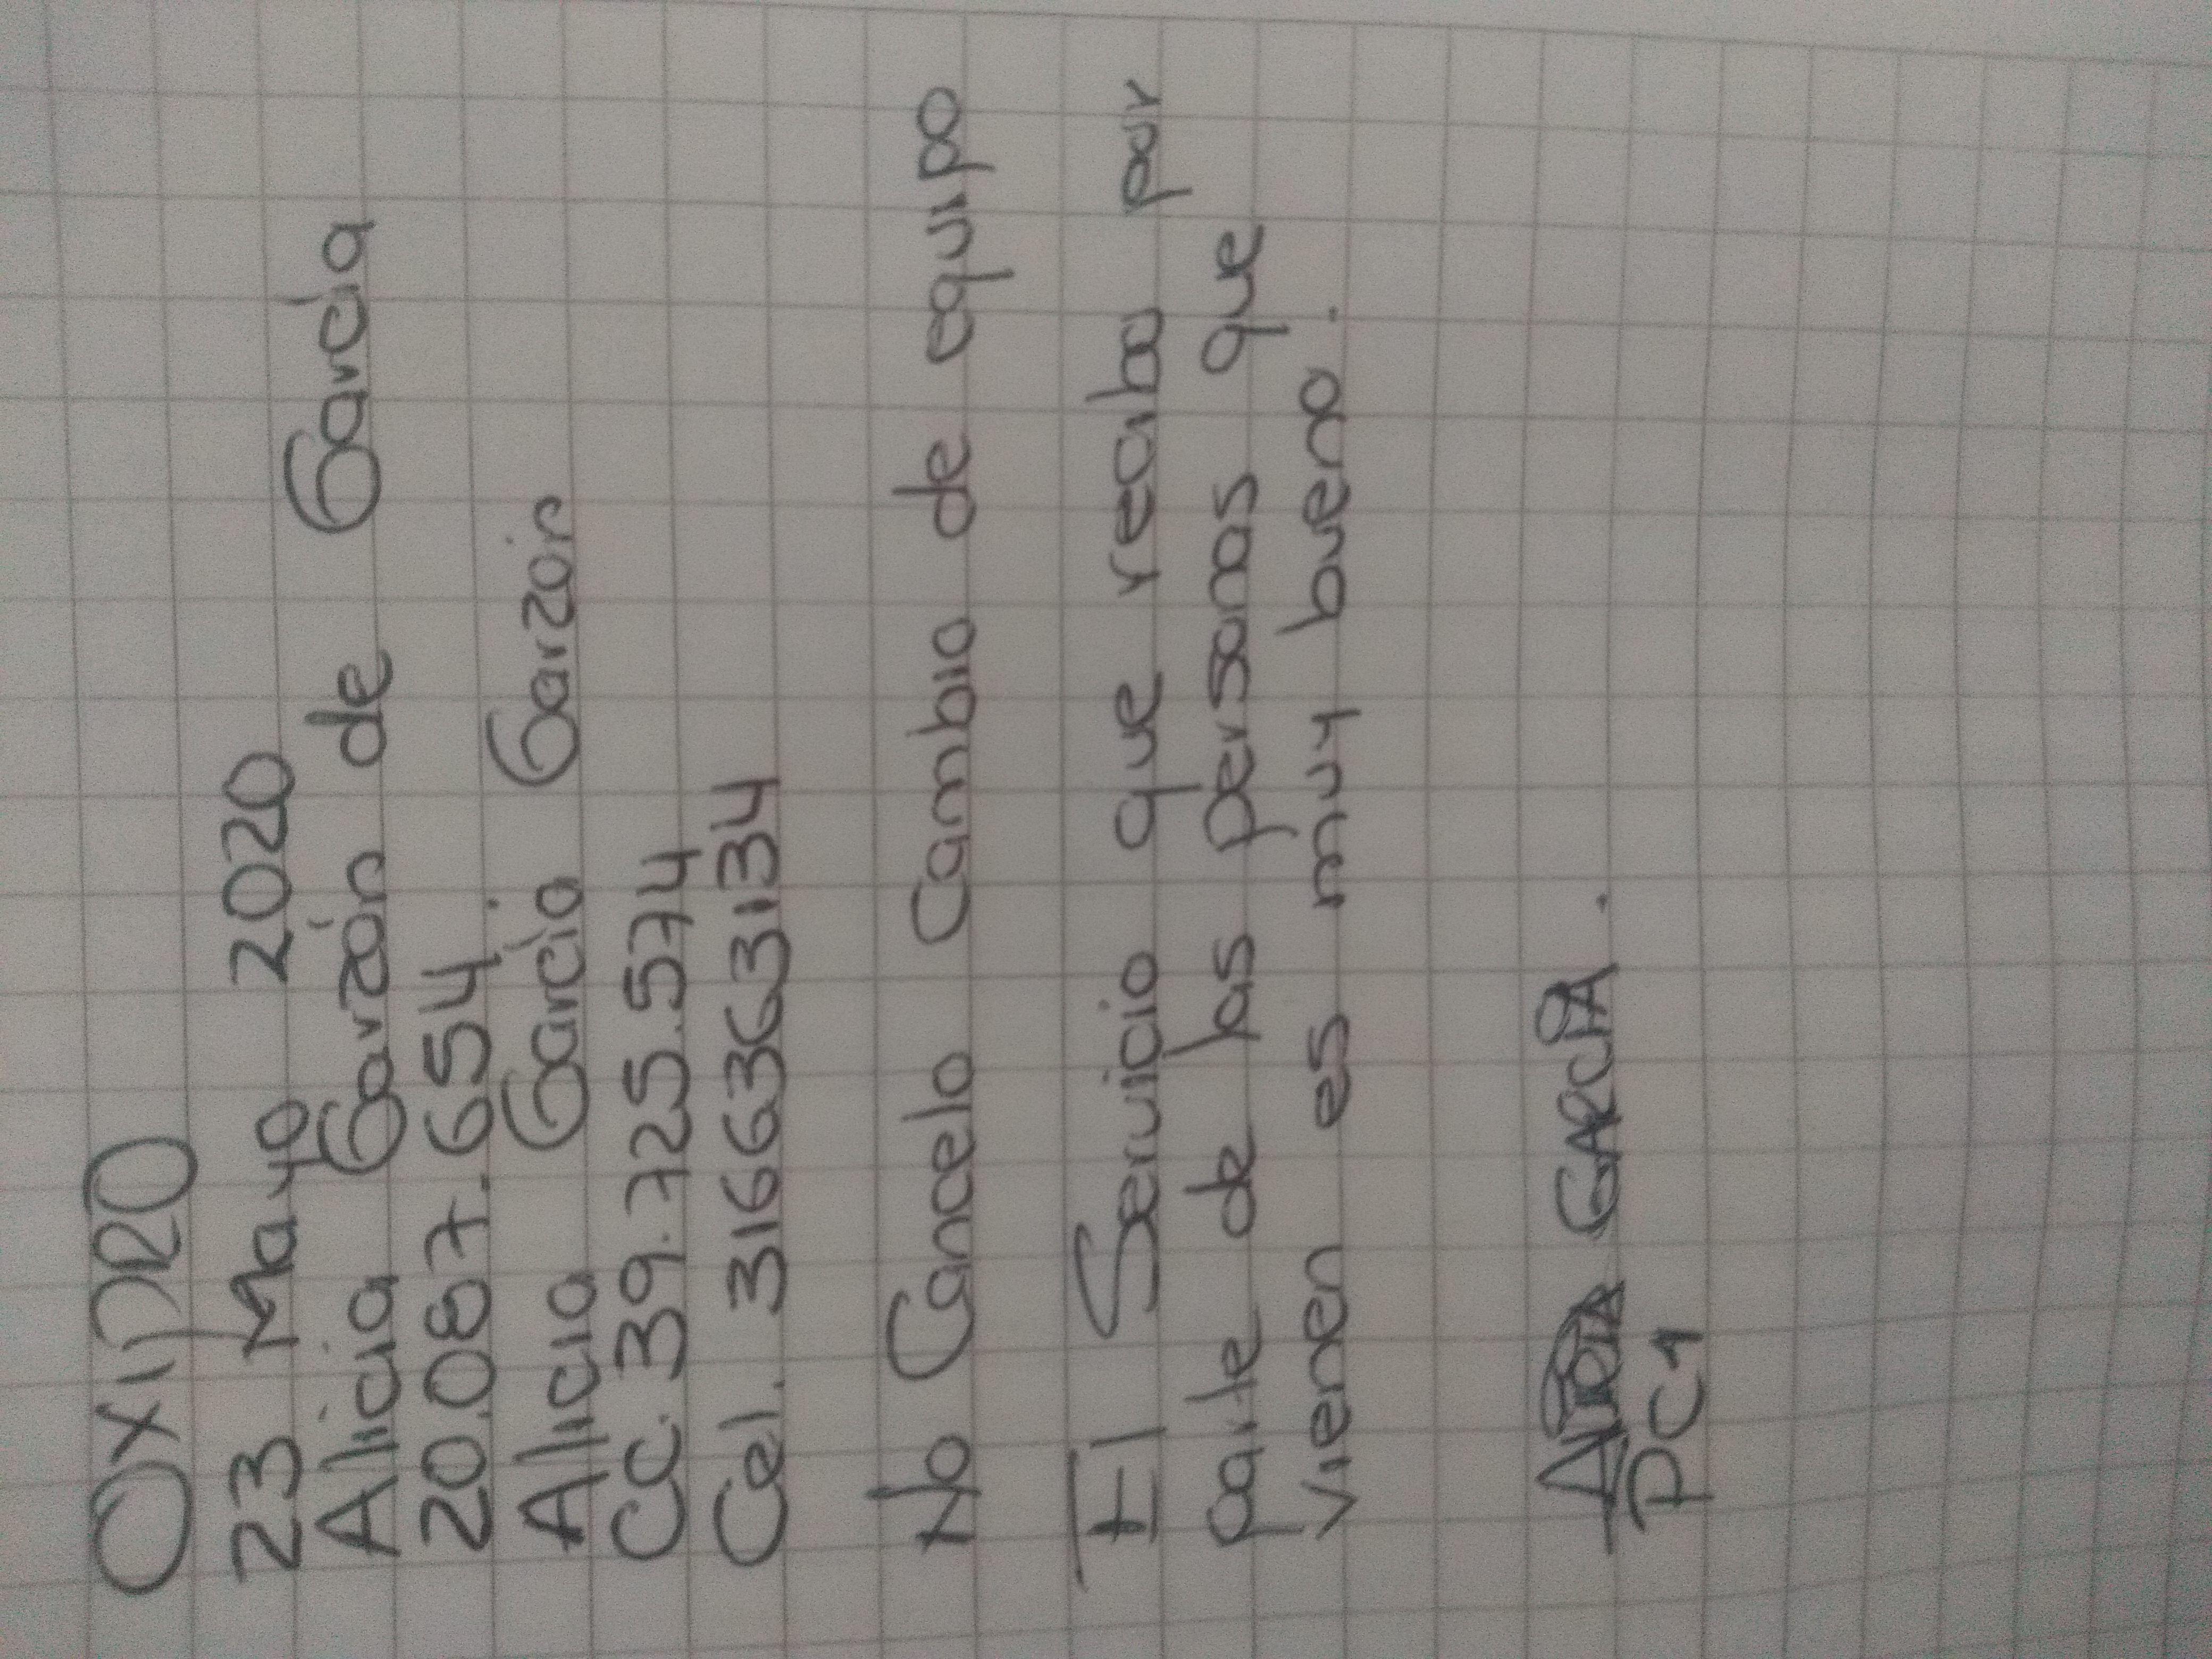 OXIPRO
23 Mayo 2020
Alicia Garzón de García
20.087.654.
Alicia García Garzón
CC. 39.725.574
Cel. 3166363134
No Cancelo Cambio de equipo
El Servicio que recibo por
parte de las personas que
vienen es muy bueno.
GARCÍA.
PC1